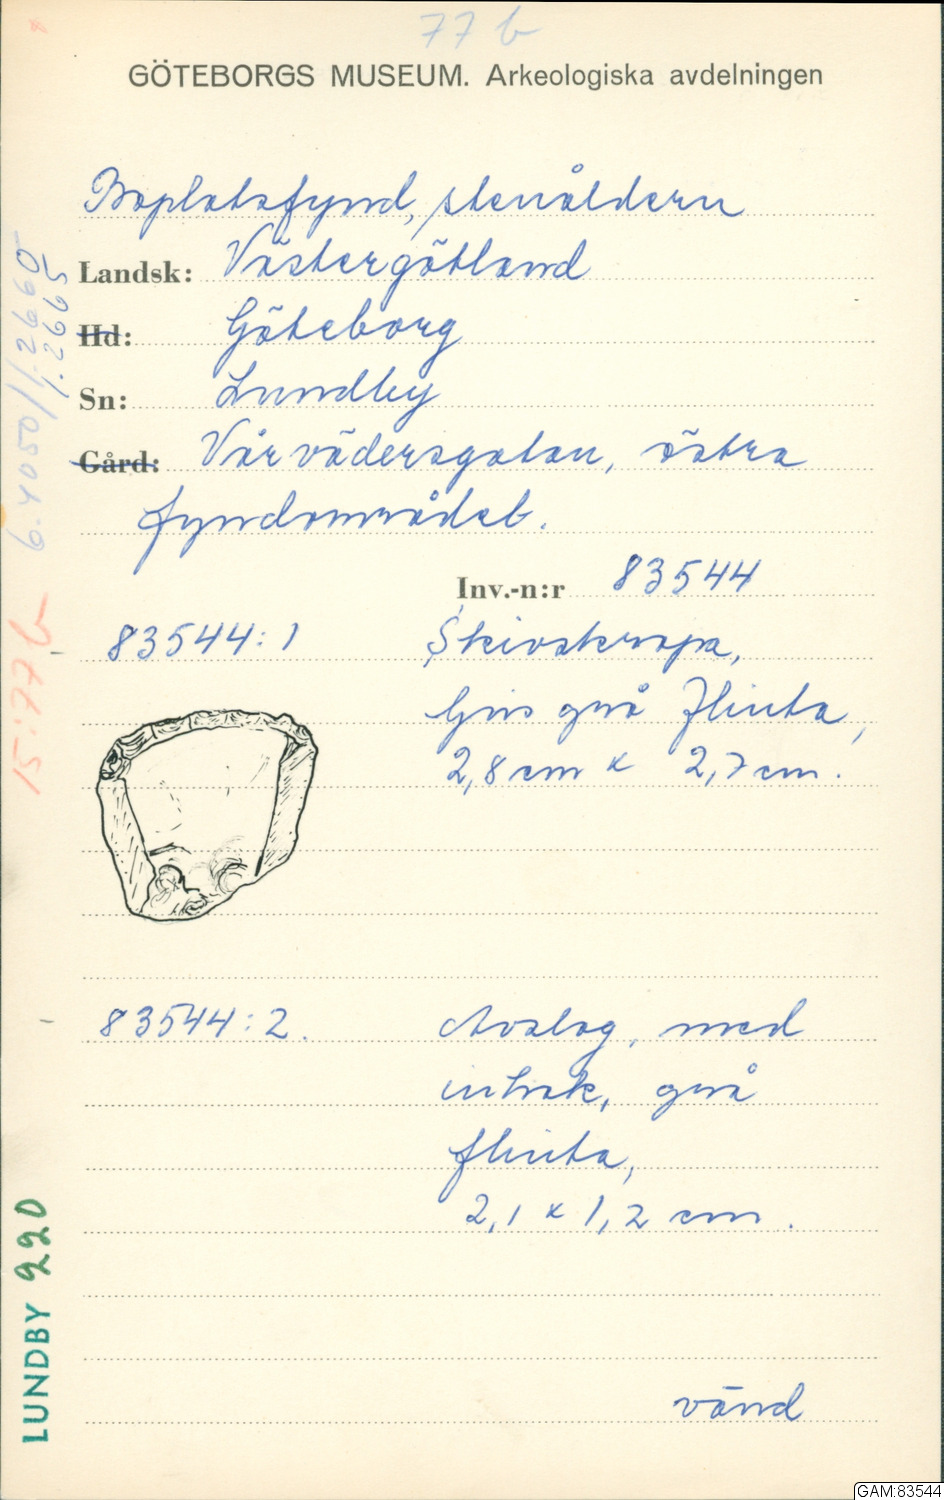 77 b
GÖTEBORGS MUSEUM. Arkeologiska avdelningen
Boplatsfynd, stenåldern
Landsk: Västergötland
Hd: Göteborg
Sn: Lundby
Gård: Vårvädersgatan, östra
fyndområdet.
Inv.-n:r 83544
83544:1 Skivskrapa,
ljus grå flinta,
2,8 cm x 2,7 cm.
83544:2. Avslag, med
inhak, grå
flinta,
2,1 x 1,2 cm.
vänd
15:77 b
LUNDBY 220
GAM:83544